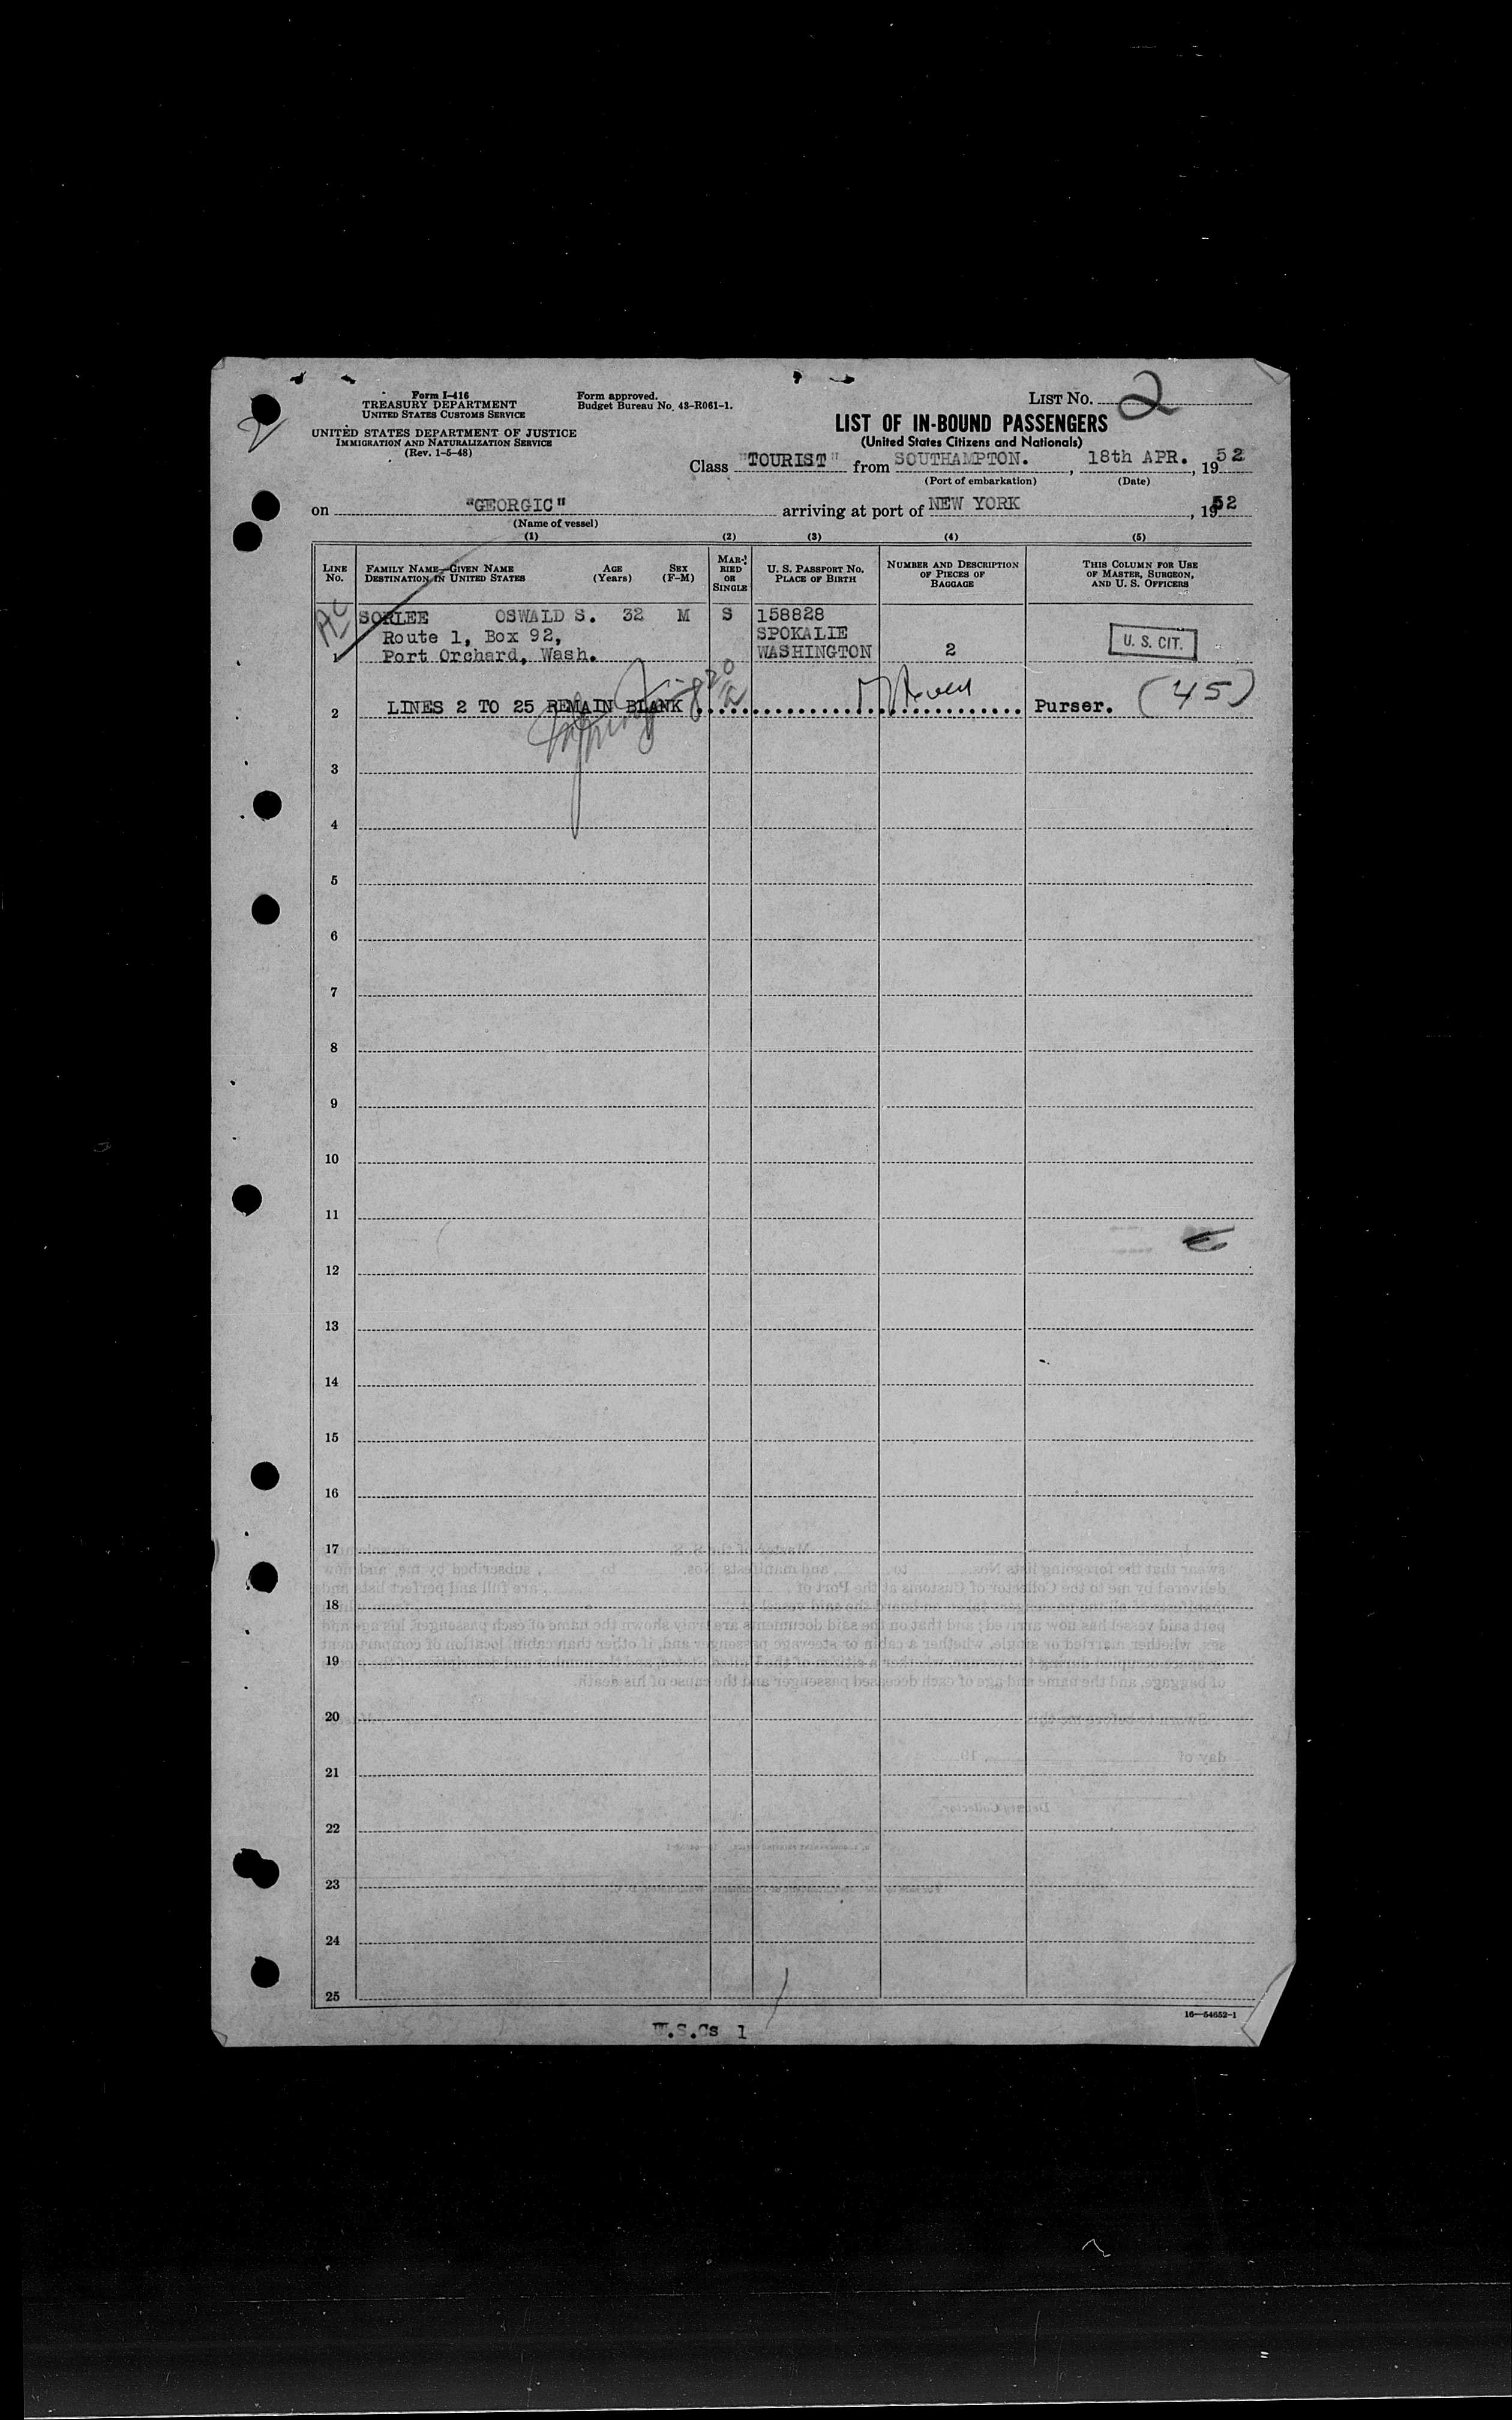 Form I-416
TREASURY DEPARTMENT
UNITED STATES CUSTOMS SERVICE
UNITED STATES DEPARTMENT OF JUSTICE
IMMIGRATION AND NATURALIZATION SERVICE
(Rev. 1-5-48)
Form approved.
Budget Bureau No. 43-R061-1.
LIST NO. 2
LIST OF IN-BOUND PASSENGERS
(United States Citizens and Nationals)
Class "TOURIST" from SOUTHAMPTON. , 18th APR. , 1952
(Port of embarkation) (Date)
on "GEORGIC" arriving at port of NEW YORK , 1952
(Name of vessel)
(1) (2) (3) (4) (5)
LINE NO. FAMILY NAME—GIVEN NAME DESTINATION IN UNITED STATES AGE (Years) SEX (F-M) MARRIED OR SINGLE U. S. PASSPORT NO. PLACE OF BIRTH NUMBER AND DESCRIPTION OF PIECES OF BAGGAGE THIS COLUMN FOR USE OF MASTER, SURGEON, AND U. S. OFFICERS
SORLEE OSWALD S. 32 M S 158828
Route 1, Box 92, SPOKALIE
1 Port Orchard, Wash. WASHINGTON 2 U. S. CIT.
2 LINES 2 TO 25 REMAIN BLANK Purser. (45)
3
4
5
6
7
8
9
10
11
12
13
14
15
16
17
18
19
20
21
22
23
24
25
16—54652-1
U.S.Cs 1